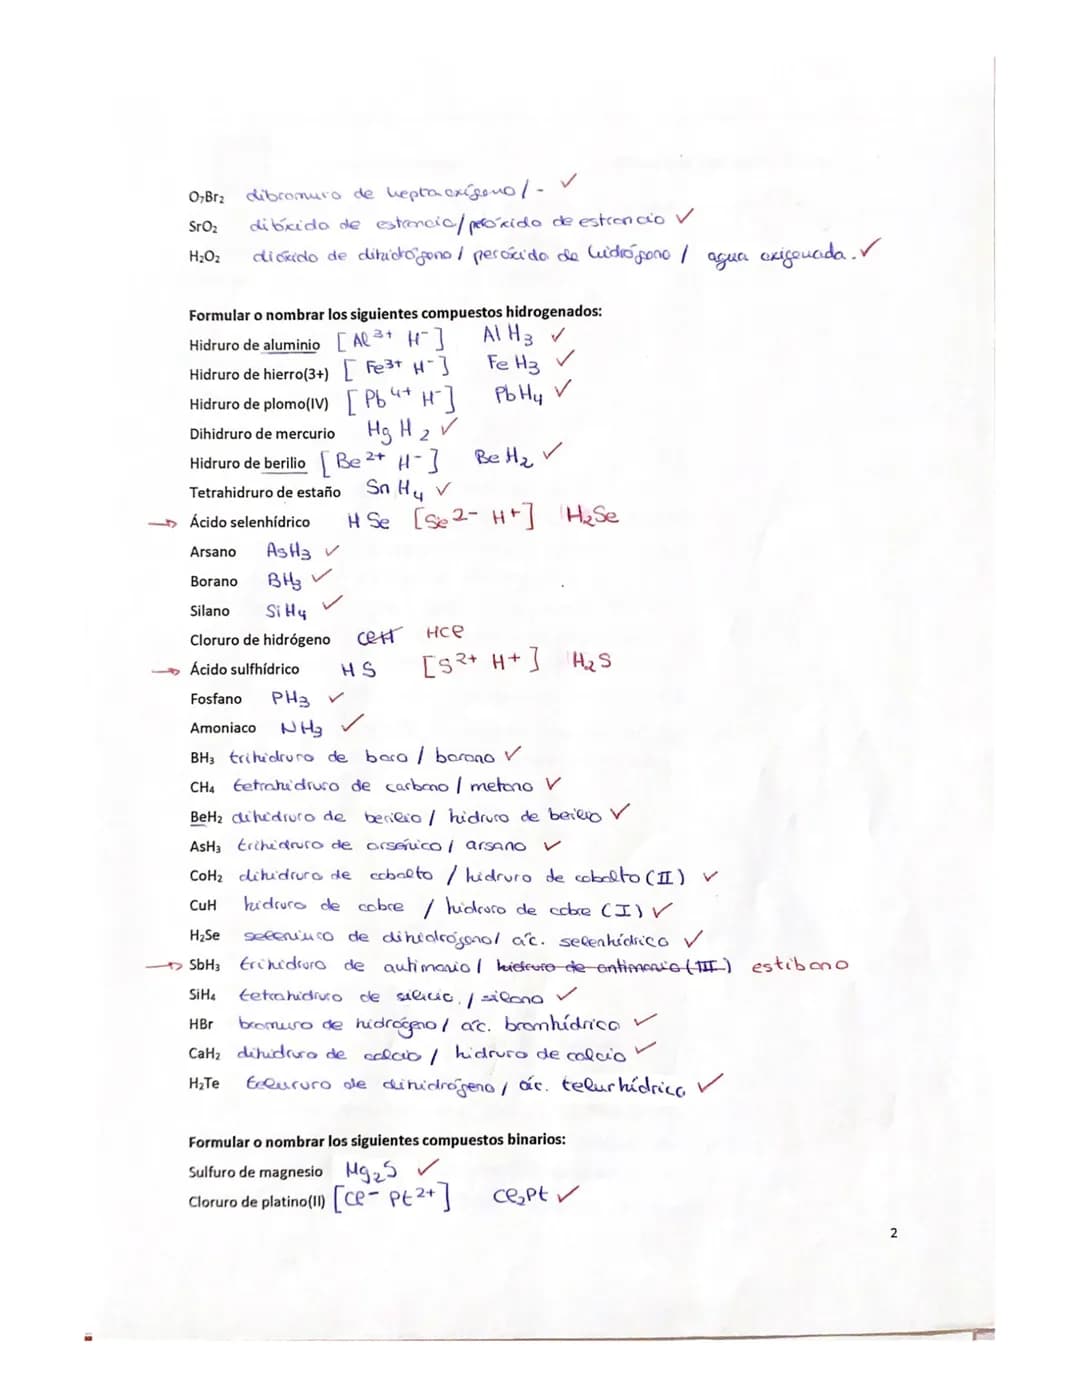 O₇Br₂ dibromuro de heptaoxígeno / - ✓
SrO₂ dióxido de estroncio / peróxido de estroncio ✓
H₂O₂ dióxido de dihidrógeno / peróxido de hidrógeno / agua oxigenada. ✓
Formular o nombrar los siguientes compuestos hidrogenados:
Hidruro de aluminio [Al³⁺ H⁻] AlH₃ ✓
Hidruro de hierro(3+) [Fe³⁺ H⁻] FeH₃ ✓
Hidruro de plomo(IV) [Pb⁴⁺ H⁻] PbH₄ ✓
Dihidruro de mercurio HgH₂ ✓
Hidruro de berilio [Be²⁺ H⁻] BeH₂ ✓
Tetrahidruro de estaño SnH₄ ✓
→ Ácido selenhídrico HSe [Se²⁻ H⁺] H₂Se
Arsano AsH₃ ✓
Borano BH₃ ✓
Silano SiH₄ ✓
Cloruro de hidrógeno ClH HCl
→ Ácido sulfhídrico HS [S²⁺ H⁺] H₂S
Fosfano PH₃ ✓
Amoniaco NH₃ ✓
BH₃ trihidruro de boro / borano ✓
CH₄ tetrahidruro de carbono / metano ✓
BeH₂ dihidruro de berilio / hidruro de berilio ✓
AsH₃ trihidruro de arsénico / arsano ✓
CoH₂ dihidruro de cobalto / hidruro de cobalto (II) ✓
CuH hidruro de cobre / hidruro de cobre (I) ✓
H₂Se seleniuro de dihidrógeno / ác. selenhídrico ✓
→ SbH₃ trihidruro de antimonio / hidruro de antimonio (III) estibano
SiH₄ tetrahidruro de silicio. / silano ✓
HBr bromuro de hidrógeno / ác. bromhídrico ✓
CaH₂ dihidruro de calcio / hidruro de calcio ✓
H₂Te telururo de dihidrógeno / ác. telurhídrico ✓
Formular o nombrar los siguientes compuestos binarios:
Sulfuro de magnesio Mg₂S ✓
Cloruro de platino(II) [Cl⁻ Pt²⁺] Cl₂Pt ✓
2